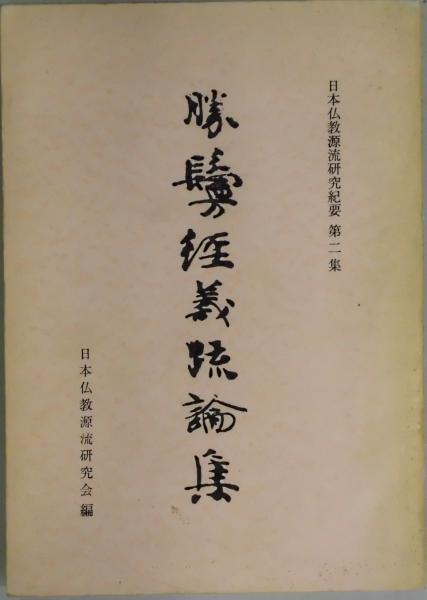 日本仏教源流研究紀要 第二集
勝鬘経義疏論集
日本仏教源流研究会編